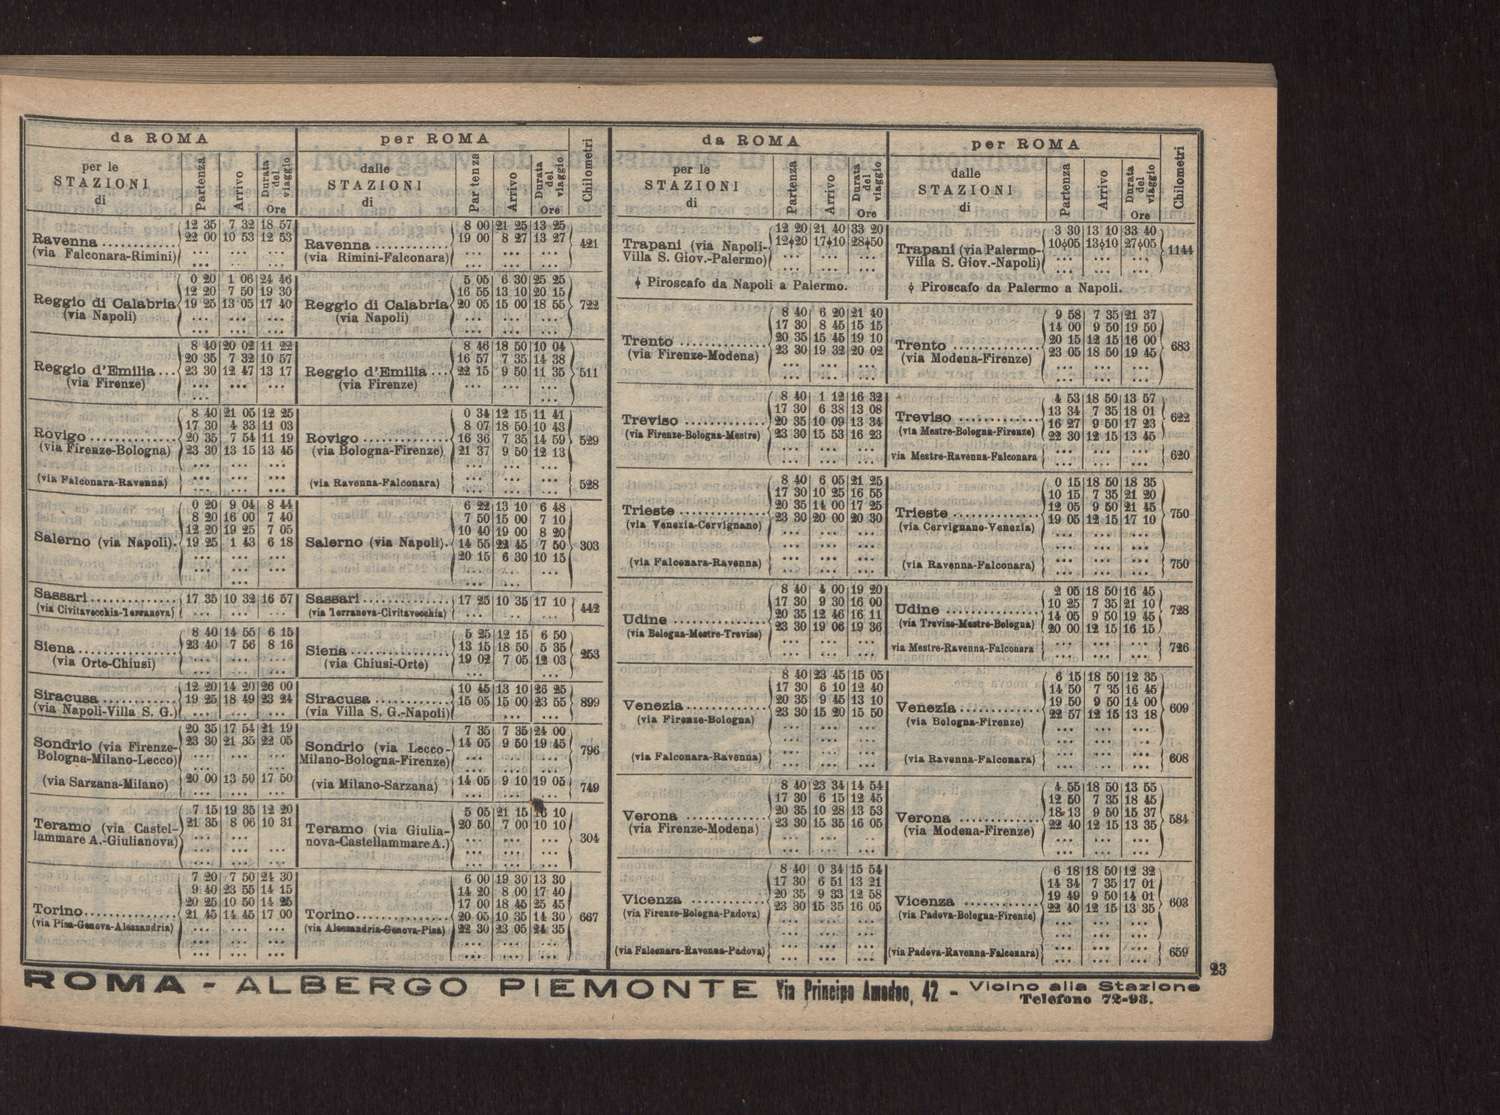 da ROMA
per le STAZIONI di
Partenza
Arrivo
Durata del viaggio
Ore
per ROMA
dalle STAZIONI di
Partenza
Arrivo
Durata del viaggio
Ore
Chilometri
Ravenna (via Falconara-Rimini)
12 35 7 32 18 57
22 00 10 53 12 53
Ravenna (via Rimini-Falconara)
8 00 21 25 13 25
19 00 8 27 13 27
421
Reggio di Calabria (via Napoli)
0 20 1 06 24 46
12 20 7 50 19 30
19 25 13 05 17 40
Reggio di Calabria (via Napoli)
5 05 6 30 25 25
16 55 13 10 20 15
20 05 15 00 18 55
722
Reggio d'Emilia (via Firenze)
8 40 20 02 11 22
20 35 7 32 10 57
23 30 12 47 13 17
Reggio d'Emilia (via Firenze)
8 46 18 50 10 04
16 57 7 35 14 38
22 15 9 50 11 35
511
Rovigo (via Firenze-Bologna)
8 40 21 05 12 25
17 30 4 33 11 03
20 35 7 54 11 19
23 30 13 15 13 45
(via Falconara-Ravenna)
Rovigo (via Bologna-Firenze)
0 34 12 15 11 41
8 07 18 50 10 43
16 36 7 35 14 59
21 37 9 50 12 13
529
(via Ravenna-Falconara)
528
Salerno (via Napoli).
0 20 9 04 8 44
8 20 16 00 7 40
12 20 19 25 7 05
19 25 1 43 6 18
Salerno (via Napoli).
6 22 13 10 6 48
7 50 15 00 7 10
10 40 19 00 8 20
14 55 22 45 7 50
20 15 6 30 10 15
303
Sassari (via Civitavecchia-Terranova)
17 35 10 32 16 57
Sassari (via Terranova-Civitavecchia)
17 25 10 35 17 10
442
Siena (via Orte-Chiusi)
8 40 14 55 6 15
23 40 7 56 8 16
Siena (via Chiusi-Orte)
5 25 12 15 6 50
13 15 18 50 5 35
19 02 7 05 12 03
253
Siracusa (via Napoli-Villa S. G.)
12 20 14 20 26 00
19 25 18 49 23 24
Siracusa (via Villa S. G.-Napoli)
10 45 13 10 26 25
15 05 15 00 23 55
899
Sondrio (via Firenze-Bologna-Milano-Lecco)
20 35 17 54 21 19
23 30 21 35 22 05
(via Sarzana-Milano)
20 00 13 50 17 50
Sondrio (via Lecco-Milano-Bologna-Firenze)
7 35 7 35 24 00
14 05 9 50 19 45
796
(via Milano-Sarzana)
14 05 9 10 19 05
749
Teramo (via Castellammare A.-Giulianova)
7 15 19 35 12 20
21 35 8 06 10 31
Teramo (via Giulianova-Castellammare A.)
5 05 21 15 16 10
20 50 7 00 10 10
304
Torino (via Pisa-Genova-Alessandria)
7 20 7 50 24 30
9 40 23 55 14 15
20 25 10 50 14 25
21 45 14 45 17 00
Torino (via Alessandria-Genova-Pisa)
6 00 19 30 13 30
14 20 8 00 17 40
17 00 18 45 25 45
20 05 10 35 14 30
22 30 23 05 24 35
667
da ROMA
per le STAZIONI di
Partenza
Arrivo
Durata del viaggio
Ore
per ROMA
dalle STAZIONI di
Partenza
Arrivo
Durata del viaggio
Ore
Chilometri
Trapani (via Napoli-Villa S. Giov.-Palermo)
12 20 21 40 33 20
12ϕ20 17ϕ10 28ϕ50
ϕ Piroscafo da Napoli a Palermo.
Trapani (via Palermo-Villa S. Giov.-Napoli)
3 30 13 10 33 40
10ϕ05 13ϕ10 27ϕ05
1144
ϕ Piroscafo da Palermo a Napoli.
Trento (via Firenze-Modena)
8 40 6 20 21 40
17 30 8 45 15 15
20 35 15 45 19 10
23 30 19 32 20 02
Trento (via Modena-Firenze)
9 58 7 35 21 37
14 00 9 50 19 50
20 15 12 15 16 00
23 05 18 50 19 45
683
Treviso (via Firenze-Bologna-Mestre)
8 40 1 12 16 32
17 30 6 38 13 08
20 35 10 09 13 34
23 30 15 53 16 23
Treviso (via Mestre-Bologna-Firenze)
4 53 18 50 13 57
13 34 7 35 18 01
16 27 9 50 17 23
22 30 12 15 13 45
622
via Mestre-Ravenna-Falconara
620
Trieste (via Venezia-Cervignano)
8 40 6 05 21 25
17 30 10 25 16 55
20 35 14 00 17 25
23 30 20 00 20 30
(via Falconara-Ravenna)
Trieste (via Cervignano-Venezia)
0 15 18 50 18 35
10 15 7 35 21 20
12 05 9 50 21 45
19 05 12 15 17 10
750
(via Ravenna-Falconara)
750
Udine (via Bologna-Mestre-Treviso)
8 40 4 00 19 20
17 30 9 30 16 00
20 35 12 46 16 11
23 30 19 06 19 36
Udine (via Treviso-Mestre-Bologna)
2 05 18 50 16 45
10 25 7 35 21 10
14 05 9 50 19 45
20 00 12 15 16 15
728
via Mestre-Ravenna-Falconara
726
Venezia (via Firenze-Bologna)
8 40 23 45 15 05
17 30 6 10 12 40
20 35 9 45 13 10
23 30 15 20 15 50
(via Falconara-Ravenna)
Venezia (via Bologna-Firenze)
6 15 18 50 12 35
14 50 7 35 16 45
19 50 9 50 14 00
22 57 12 15 13 18
609
(via Ravenna-Falconara)
608
Verona (via Firenze-Modena)
8 40 23 34 14 54
17 30 6 15 12 45
20 35 10 28 13 53
23 30 15 35 16 05
Verona (via Modena-Firenze)
4 55 18 50 13 55
12 50 7 35 18 45
18 13 9 50 15 37
22 40 12 15 13 35
584
Vicenza (via Firenze-Bologna-Padova)
8 40 0 34 15 54
17 30 6 51 13 21
20 35 9 33 12 58
23 30 15 35 16 05
(via Falconara-Ravenna-Padova)
Vicenza (via Padova-Bologna-Firenze)
6 18 18 50 12 32
14 34 7 35 17 01
19 49 9 50 14 01
22 40 12 15 13 35
603
(via Padova-Ravenna-Falconara)
659
23
ROMA - ALBERGO PIEMONTE Via Principe Amedeo, 42 - Vicino alla Stazione
Telefono 72-93.